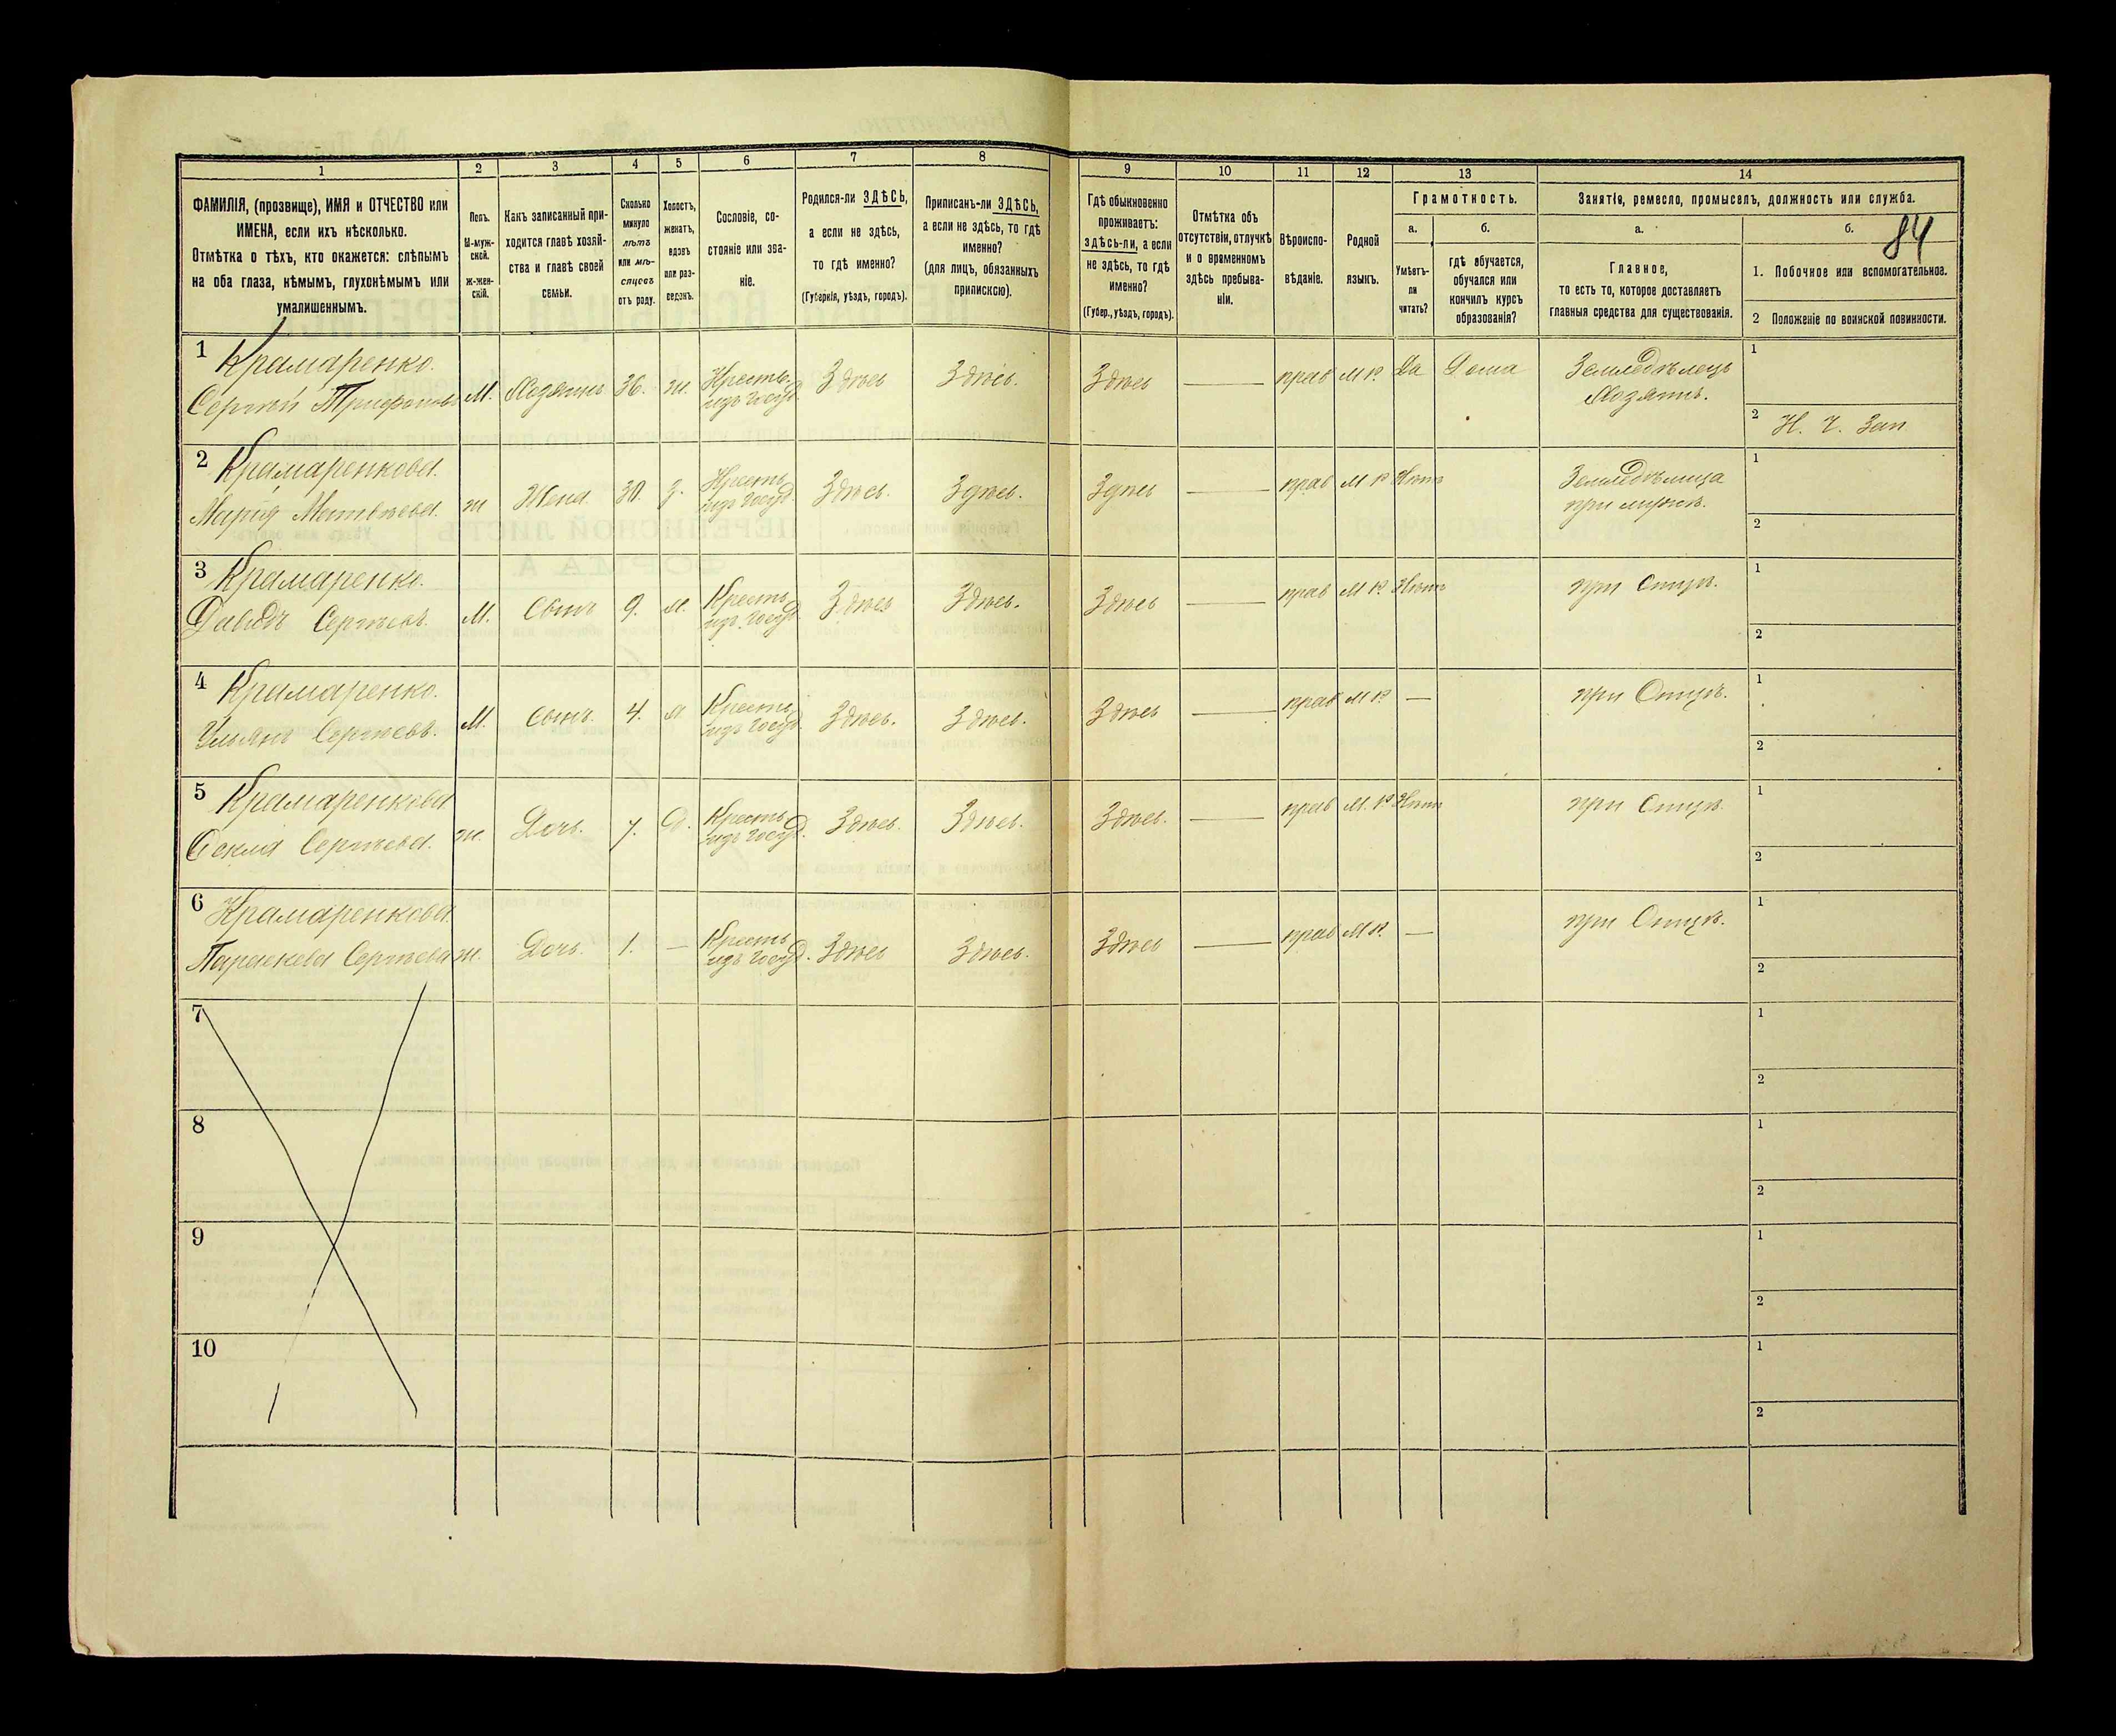 84
1 2 3 4 5 6 7 8 9 10 11 12 13 14
ФАМИЛІЯ, (прозвище), ИМЯ и ОТЧЕСТВО или
ИМЕНА, если ихъ нѣсколько.
Отмѣтка о тѣхъ, кто окажется: слѣпымъ
на оба глаза, нѣмымъ, глухонѣмымъ или
умалишеннымъ.
Полъ.
М-муж-
ской.
ж-жен-
скій.
Какъ записанный при-
ходится главѣ хозяй-
ства и главѣ своей
семьи.
Сколько
минуло
лѣтъ
или мѣ-
сяцевъ
отъ роду.
Холостъ,
женатъ,
вдовъ
или раз-
веденъ.
Сословіе, со-
стояніе или зва-
ніе.
Родился-ли ЗДѢСЬ,
а если не здѣсь,
то гдѣ именно?
(Губернія, уѣздъ, городъ).
Приписанъ-ли ЗДѢСЬ,
а если не здѣсь, то гдѣ
именно?
(для лицъ, обязанныхъ
припискою).
Гдѣ обыкновенно
проживаетъ:
здѣсь-ли, а если
не здѣсь, то гдѣ
именно?
(Губер., уѣздъ, городъ).
Отмѣтка объ
отсутствіи, отлучкѣ
и о временномъ
здѣсь пребыва-
ніи.
Вѣроиспо-
вѣданіе.
Родной
языкъ.
Грамотность.
а. б.
Умѣетъ-
ли
читать?
гдѣ обучается,
обучался или
кончилъ курсъ
образованія?
Занятіе, ремесло, промыселъ, должность или служба.
а. б.
Главное,
то есть то, которое доставляетъ
главныя средства для существованія.
1. Побочное или вспомогательное.
2 Положеніе по воинской повинности.
1 Крамаренко.
Сергѣй Трифоновъ М. Хозяинъ 36. ж. Кресть. изъ госуд. Здѣсь Здѣсь. Здѣсь — прав М Р. Да Дома Земледѣлецъ Хозяинъ. 1
2 Н. Ч. Зап
2 Крамаренкова.
Марія Матвѣева. ж Жена 30. з. Кресть изъ госуд Здѣсь. Здѣсь. Здѣсь — прав М Р Нѣтъ Земледѣлица при мужѣ. 1
2
3 Крамаренко.
Давидъ Сергѣевъ. М. Сынъ 9. Кресть изъ госуд Здѣсь Здѣсь. Здѣсь — прав М Р. Нѣтъ при Отцѣ. 1
2
4 Крамаренко.
Ульянъ Сергѣевъ. М. Сынъ. 4. Кресть изъ госуд. Здѣсь. Здѣсь. Здѣсь — прав М Р. — при Отцѣ. 1
2
5 Крамаренкова
Ѳекла Сергѣева. ж. Дочь. 7. Д. Кресть изъ госуд. Здѣсь. Здѣсь. Здѣсь. — прав М. Р Нѣтъ при Отцѣ 1
2
6 Крамаренкова.
Параскева Сергѣева ж. Дочь. 1. — Кресть изъ госуд. Здѣсь Здѣсь. Здѣсь — прав М Р. — при Отцѣ. 1
2
7 1
2
8 1
2
9 1
2
10 1
2